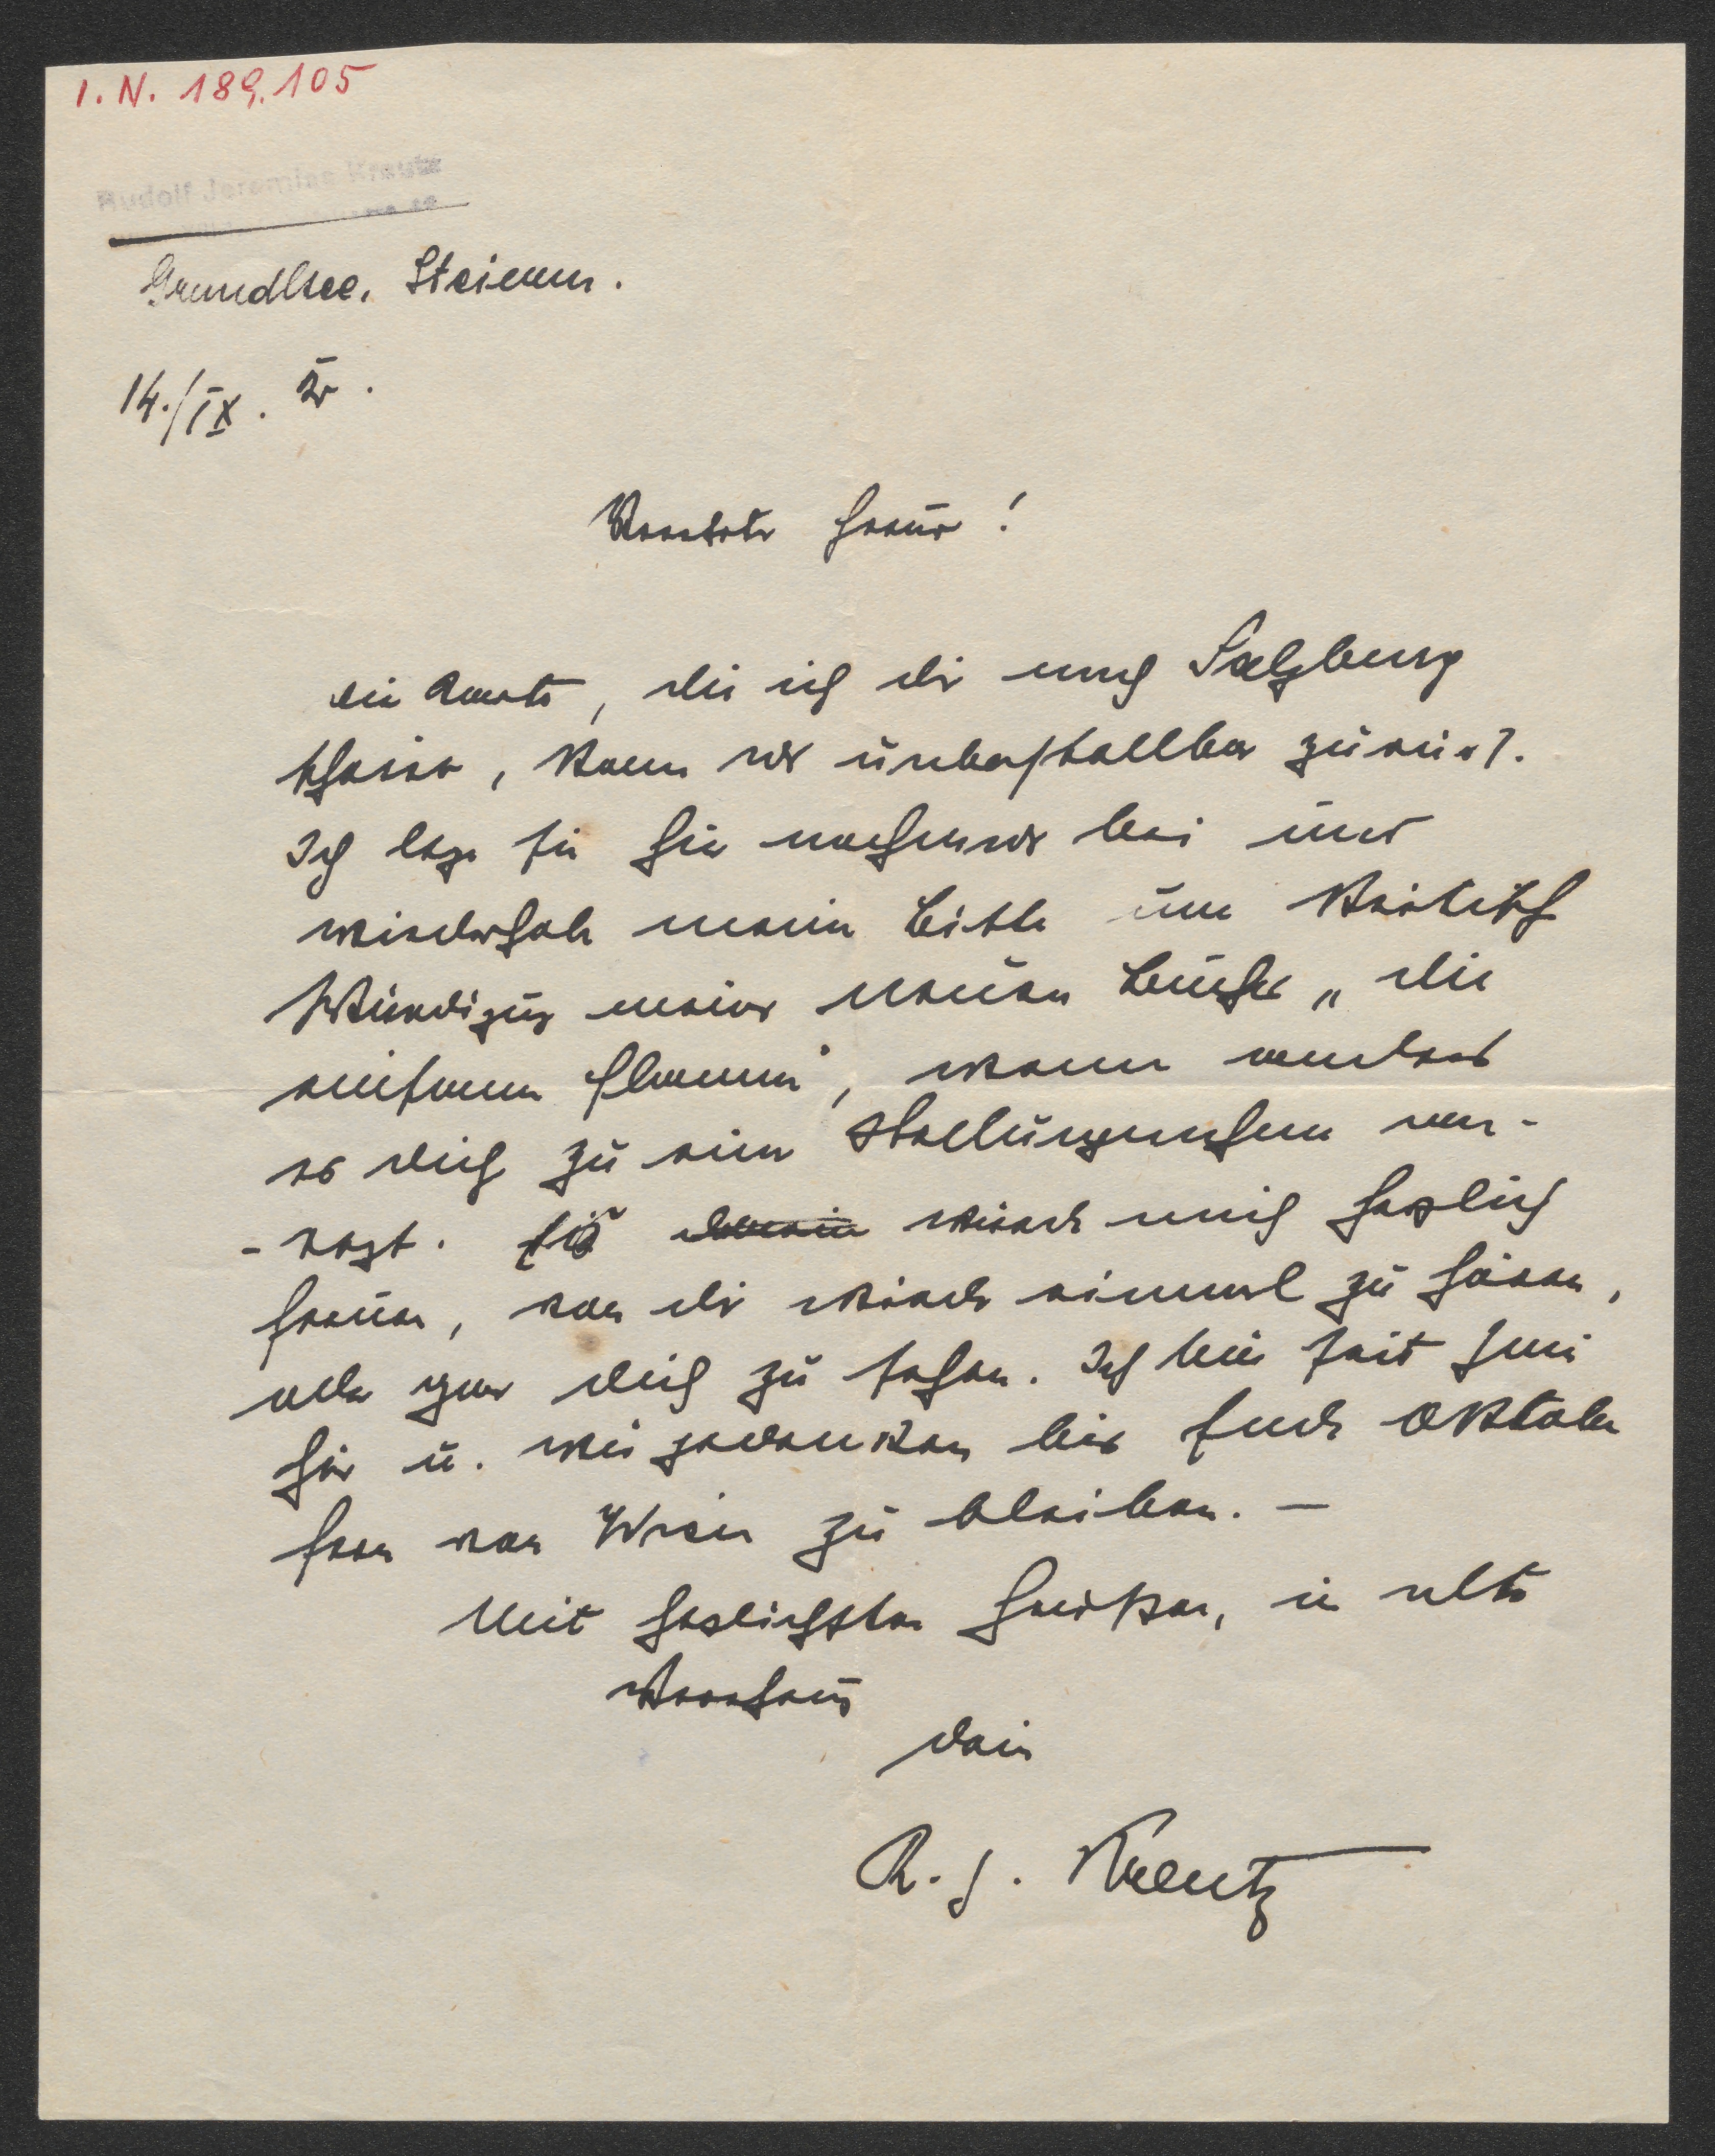 I. N. 189.105
Rudolf Jeremias Kreutz
Grundlsee, Steierm.
14./IX. 20.
Freund!
die Karte, die ich dir nach Salzburg
schrieb, kam als unbestellbar zurück.
Ich lege sie hier nochmals bei und
wiederhole meine Bitte um kritische
Würdigung meines neuen Buches „die
einsame Flamme“, wenn anders
es dich zu einer Stellungnahme an-
-regt. Es würde mich herzlich
freuen, von dir wieder einmal zu hören,
oder gar dich zu sehen. Ich bin seit Juni
hier u. wir gedenken bis Ende Oktober
fern von Wien zu bleiben. —
Mit herzlichsten Grüßen, in alter
Verehrung
dein
R. J. Kreutz